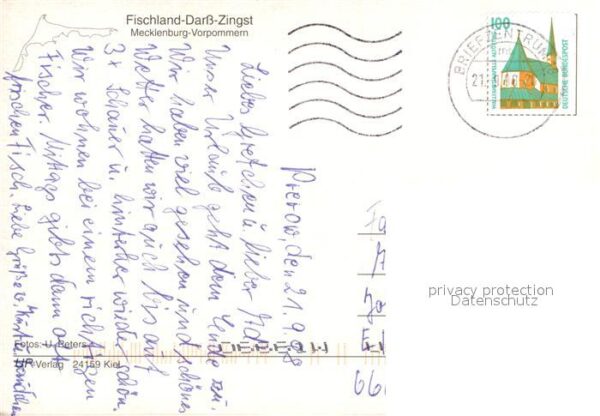 Fischland-Darß-Zingst
Mecklenburg-Vorpommern
100
WALLFAHRTSKAPELLE ALTÖTTING
DEUTSCHE BUNDESPOST
BRIEFZENTRUM
Prerow, den 21.9.
Liebes Gretchen u. lieber
Unser Urlaub geht dem Ende zu.
Wir haben viel gesehen und schönes
Wetter hatten wir auch bis auf
3x Schauer u. hinterher wieder schön.
Wir wohnen bei einem richtigen
Fischer. Mittags gibts dann oft
frischen Fisch. Liebe Grüße
privacy protection
Datenschutz
Fotos: U. Peters
Verlag 24159 Kiel